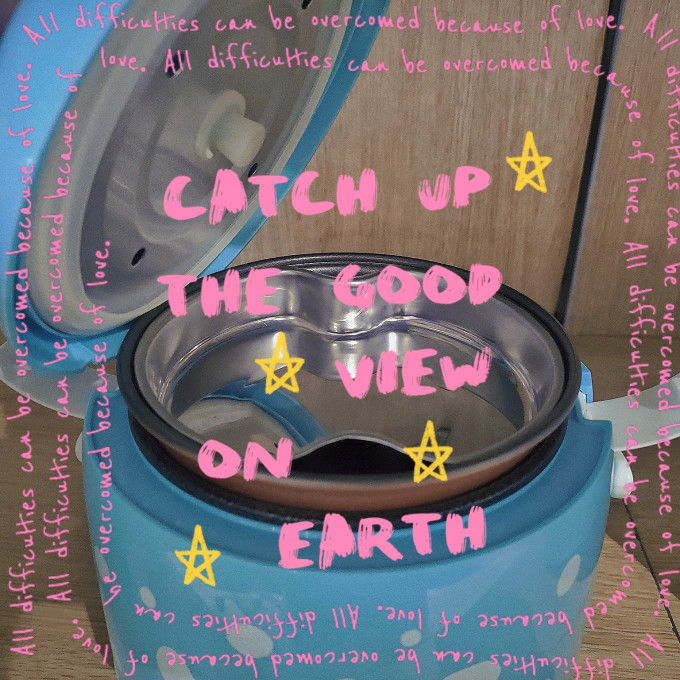 All difficulties can be overcomed because of love.
All difficulties can be overcomed because of love. All
difficulties can be overcomed because of love.
All difficulties can be overcomed because of love.
All difficulties can be overcomed because of
love. All difficulties can be overcomed because
of love. All difficulties can be overcomed
because of love. All difficulties can
be overcomed because of love.
CATCH UP
THE GOOD
VIEW
ON
EARTH